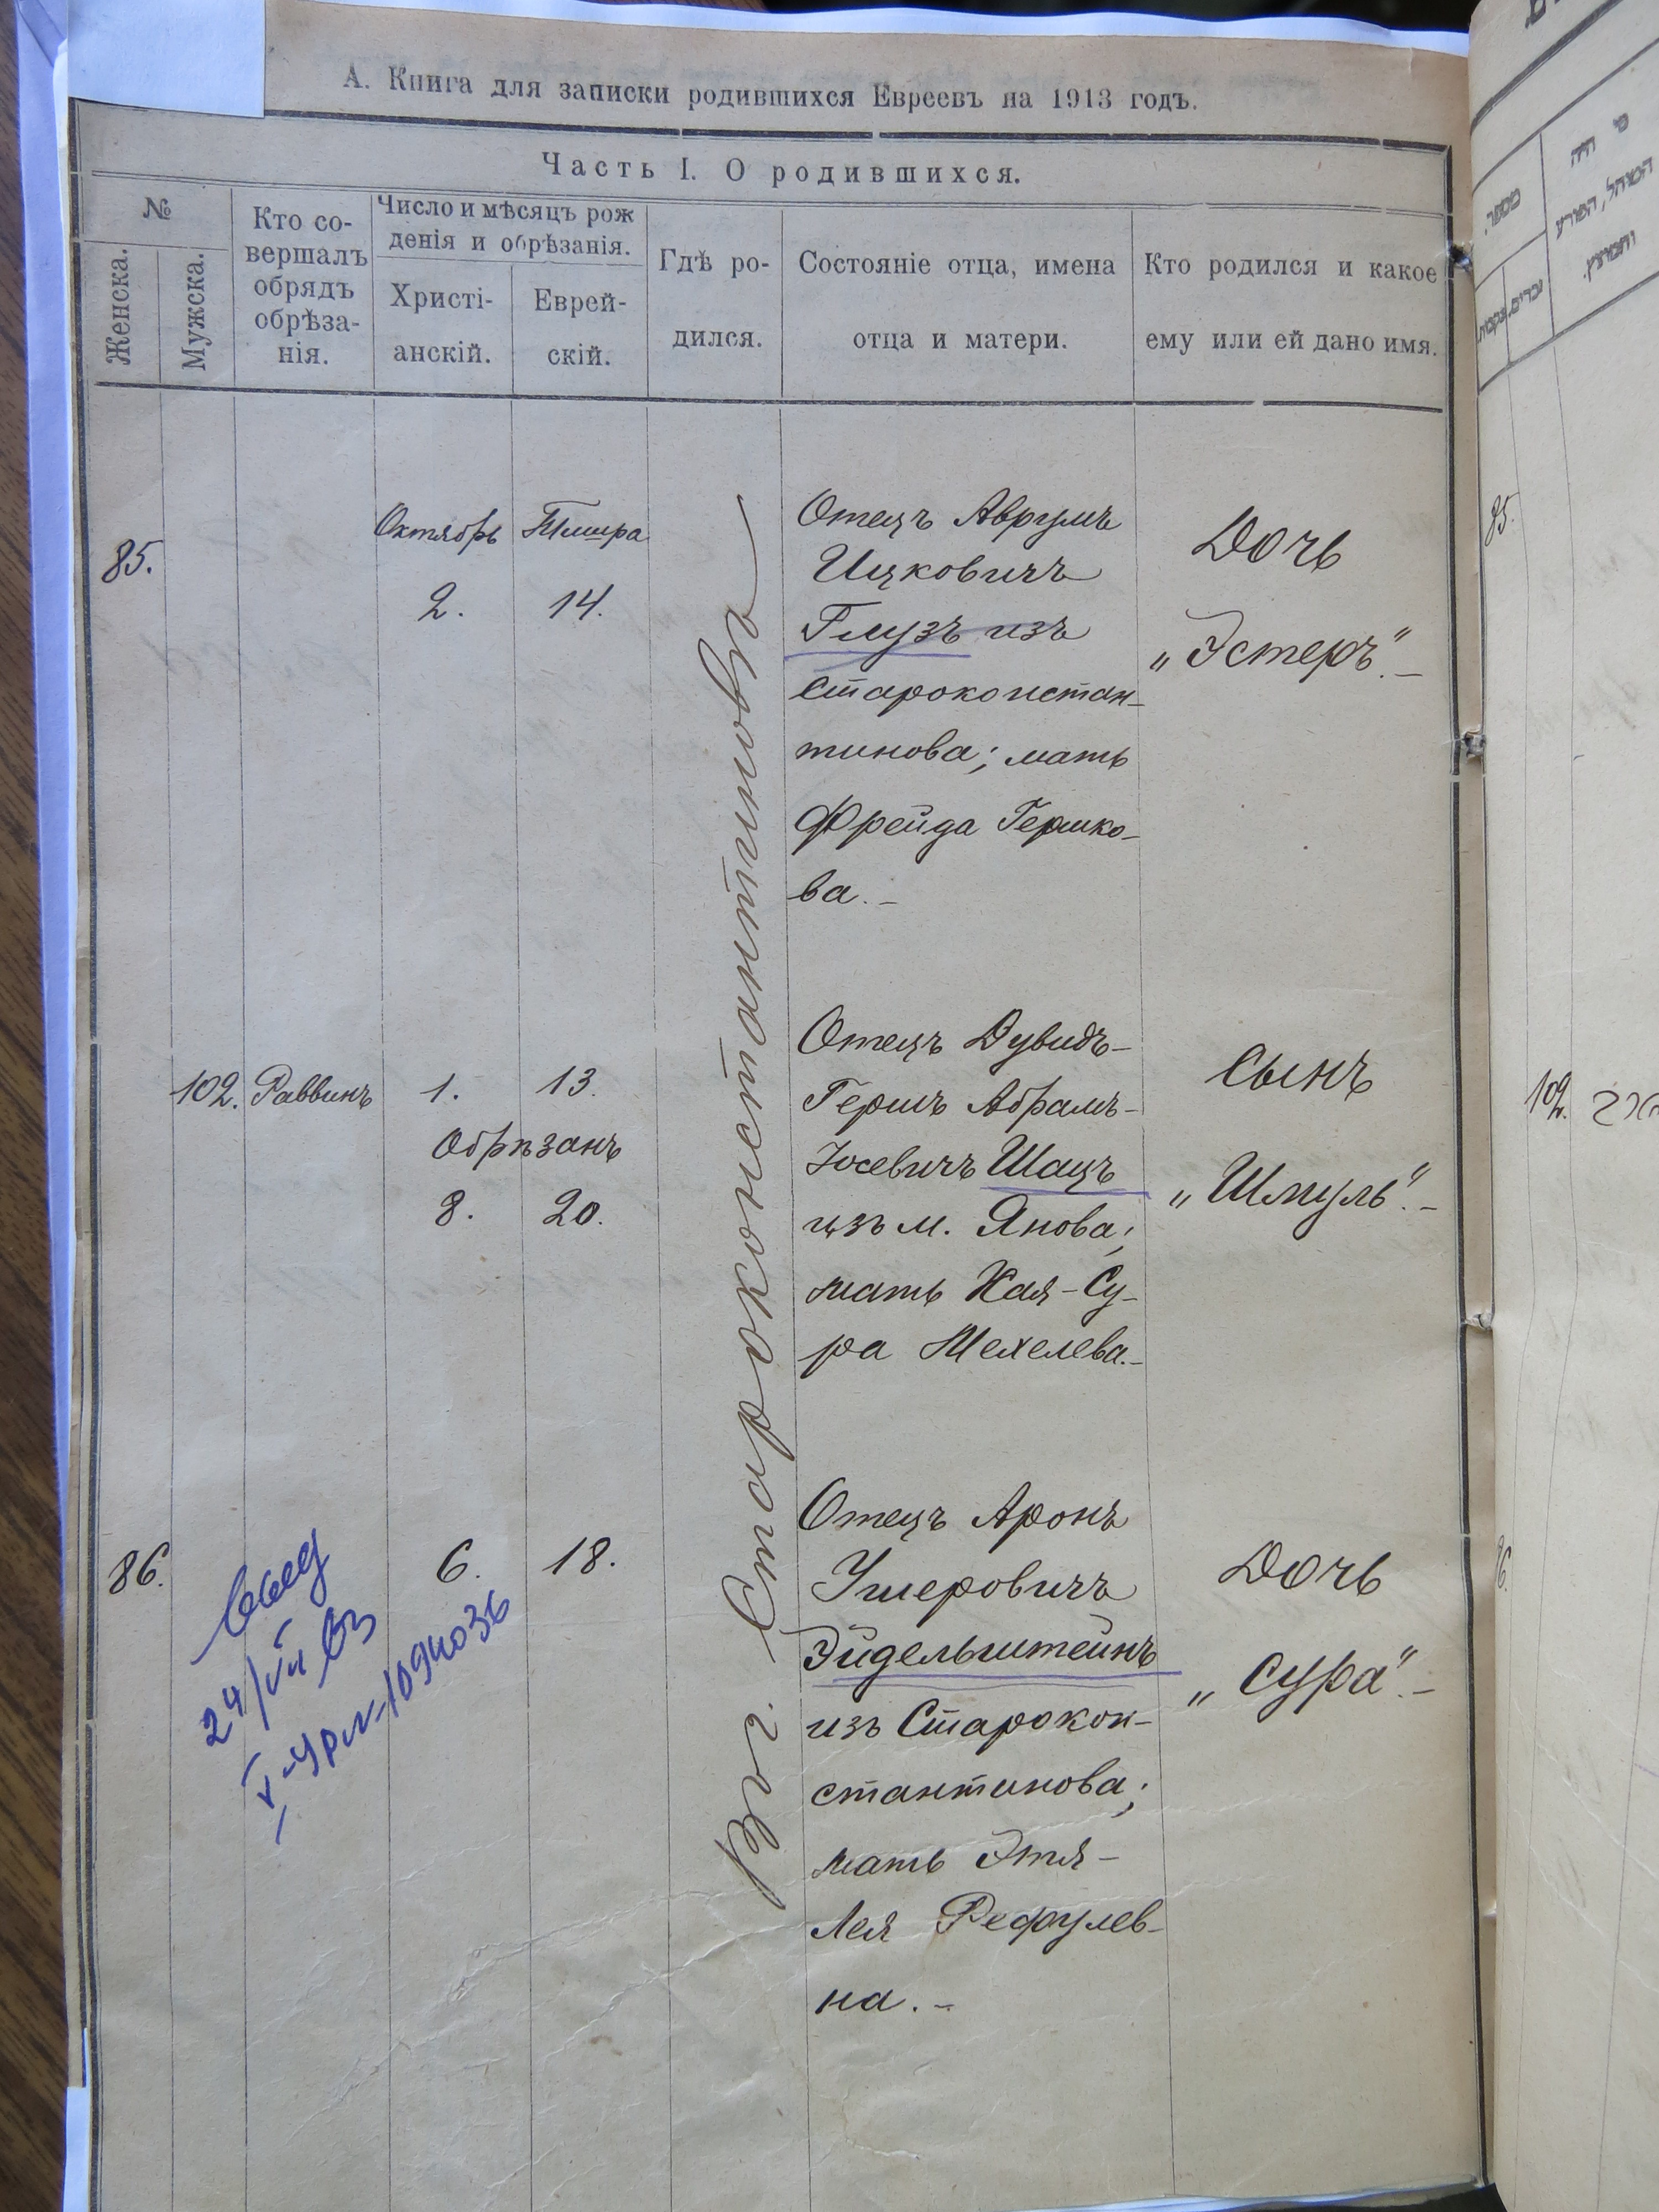 А. Книга для записки родившихся Евреевъ на 1913 годъ.
Часть I. О родившихся.
№
Женска.
Мужска.
Кто со-
вершалъ
обрядъ
обрѣза-
нія.
Число и мѣсяцъ рож
денія и обрѣзанія.
Христі-
анскій.
Еврей-
скій.
Гдѣ ро-
дился.
Состояніе отца, имена
отца и матери.
Кто родился и какое
ему или ей дано имя.
85.
Октябрь
2.
Тишра
14.
Въ г. Староконстантиновѣ
Отецъ Аврумъ
Ицковичъ
Глузъ изъ
Староконстан-
тинова; мать
Фрейда Гершко-
ва.-
Дочь
„Эстеръ".-
102.
Раввинъ
1.
13.
Обрѣзанъ
8.
20.
Отецъ Дувидъ-
Гершъ Абрамъ-
Іосевичъ Шацъ
изъ м. Янова;
мать Хая-Су-
ра Мехелева.-
Сынъ
„Шмуль".-
86.
6.
18.
Отецъ Аронъ
Ушеровичъ
Эйдельштейнъ
изъ Старокон-
стантинова;
мать Этя-
Лея Рефулев-
на.-
Дочь
„Сура".-
85.
102.
מספר.